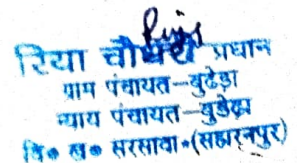 रिया चौधरी प्रधान
ग्राम पंचायत-बुढेड़ा
न्याय पंचायत-बुडेढा
वि० ख० सरसावा (सहारनपुर)